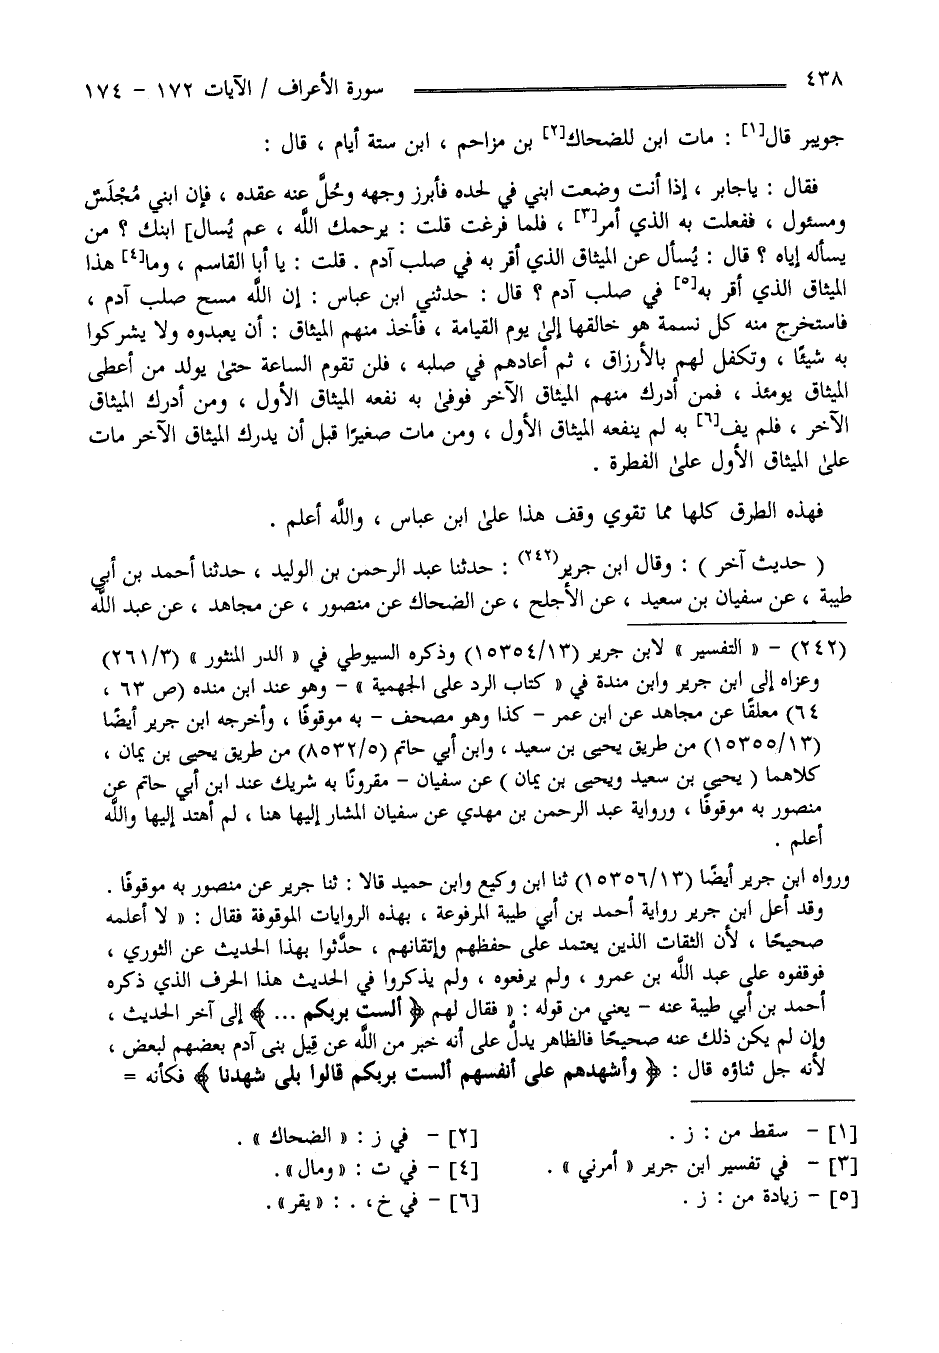 ٤٣٨ سورة الأعراف / الآيات ١٧٢ - ١٧٤
جويبر قال[١] : مات ابن للضحاك[٢] بن مزاحم ، ابن ستة أيام ، قال :
فقال : ياجابر ، إذا أنت وضعت ابني في لحده فأبرز وجهه وحُلَّ عنه عقده ، فإن ابني مُجْلَسٌ
ومسئول ، ففعلت به الذي أمر[٣] ، فلما فرغت قلت : يرحمك الله ، عم يُسال] ابنك ؟ من
يسأله إياه ؟ قال : يُسأل عن الميثاق الذي أقر به في صلب آدم . قلت : يا أبا القاسم ، وما[٤] هذا
الميثاق الذي أقر به[٥] في صلب آدم ؟ قال : حدثني ابن عباس : إن اللَّه مسح صلب آدم ،
فاستخرج منه كل نسمة هو خالقها إلىٰ يوم القيامة ، فأخذ منهم الميثاق : أن يعبدوه ولا يشركوا
به شيئًا ، وتكفل لهم بالأرزاق ، ثم أعادهم في صلبه ، فلن تقوم الساعة حتىٰ يولد من أعطى
الميثاق يومئذ ، فمن أدرك منهم الميثاق الآخر فوفىٰ به نفعه الميثاق الأول ، ومن أدرك الميثاق
الآخر ، فلم يف[٦] به لم ينفعه الميثاق الأول ، ومن مات صغيرًا قبل أن يدرك الميثاق الآخر مات
علىٰ الميثاق الأول علىٰ الفطرة .
فهذه الطرق كلها مما تقوي وقف هذا علىٰ ابن عباس ، واللَّه أعلم .
( حديث آخر ) : وقال ابن جرير(٢٤٢) : حدثنا عبد الرحمن بن الوليد ، حدثنا أحمد بن أبي
طيبة ، عن سفيان بن سعيد ، عن الأجلح ، عن الضحاك عن منصور ، عن مجاهد ، عن عبد اللَّه
(٢٤٢) - « التفسير » لابن جرير (١٥٣٥٤/١٣) وذكره السيوطي في « الدر المنثور » (٢٦١/٣)
وعزاه إلى ابن جرير وابن مندة في « كتاب الرد على الجهمية » - وهو عند ابن منده (ص ٦٣ ،
٦٤) معلقًا عن مجاهد عن ابن عمر - كذا وهو مصحف - به موقوفًا ، وأخرجه ابن جرير أيضًا
(١٥٣٥٥/١٣) من طريق يحيى بن سعيد ، وابن أبي حاتم (٨٥٣٢/٥) من طريق يحيى بن يمان ،
كلاهما ( يحيى بن سعيد ويحيى بن يمان ) عن سفيان - مقرونًا به شريك عند ابن أبي حاتم عن
منصور به موقوفًا ، ورواية عبد الرحمن بن مهدي عن سفيان المشار إليها هنا ، لم أهتد إليها واللَّه
أعلم .
ورواه ابن جرير أيضًا (١٥٣٥٦/١٣) ثنا ابن وكيع وابن حميد قالا : ثنا جرير عن منصور به موقوفًا .
وقد أعل ابن جرير رواية أحمد بن أبي طيبة المرفوعة ، بهذه الروايات الموقوفة فقال : « لا أعلمه
صحيحًا ، لأن الثقات الذين يعتمد على حفظهم وإتقانهم ، حدَّثوا بهذا الحديث عن الثوري ،
فوقفوه على عبد اللَّه بن عمرو ، ولم يرفعوه ، ولم يذكروا في الحديث هذا الحرف الذي ذكره
أحمد بن أبي طيبة عنه - يعني من قوله : « فقال لهم ﴿ ألست بربكم ... ﴾ إلى آخر الحديث ،
وإن لم يكن ذلك عنه صحيحًا فالظاهر يدلُّ على أنه خبر من اللَّه عن قِيل بنى آدم بعضهم لبعض ،
لأنه جل ثناؤه قال : ﴿ وأشهدهم على أنفسهم ألست بربكم قالوا بلى شهدنا ﴾ فكأنه =
[١] - سقط من : ز . [٢] - في ز : « الضحاك » .
[٣] - في تفسير ابن جرير « أمرني » . [٤] - في ت : « ومال» .
[٥] - زيادة من : ز . [٦] - في خ، . : « يقر» .